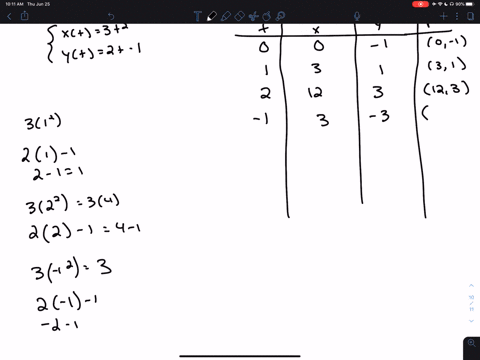 10:11 AM Thu Jun 25
90%
x(t)=3t²
y(t)=2t-1
t x y
0 0 -1 (0,-1)
1 3 1 (3,1)
2 12 3 (12,3)
-1 3 -3 (
3(1²)
2(1)-1
2-1=1
3(2²)=3(4)
2(2)-1=4-1
3(-1²)=3
2(-1)-1
-2-1